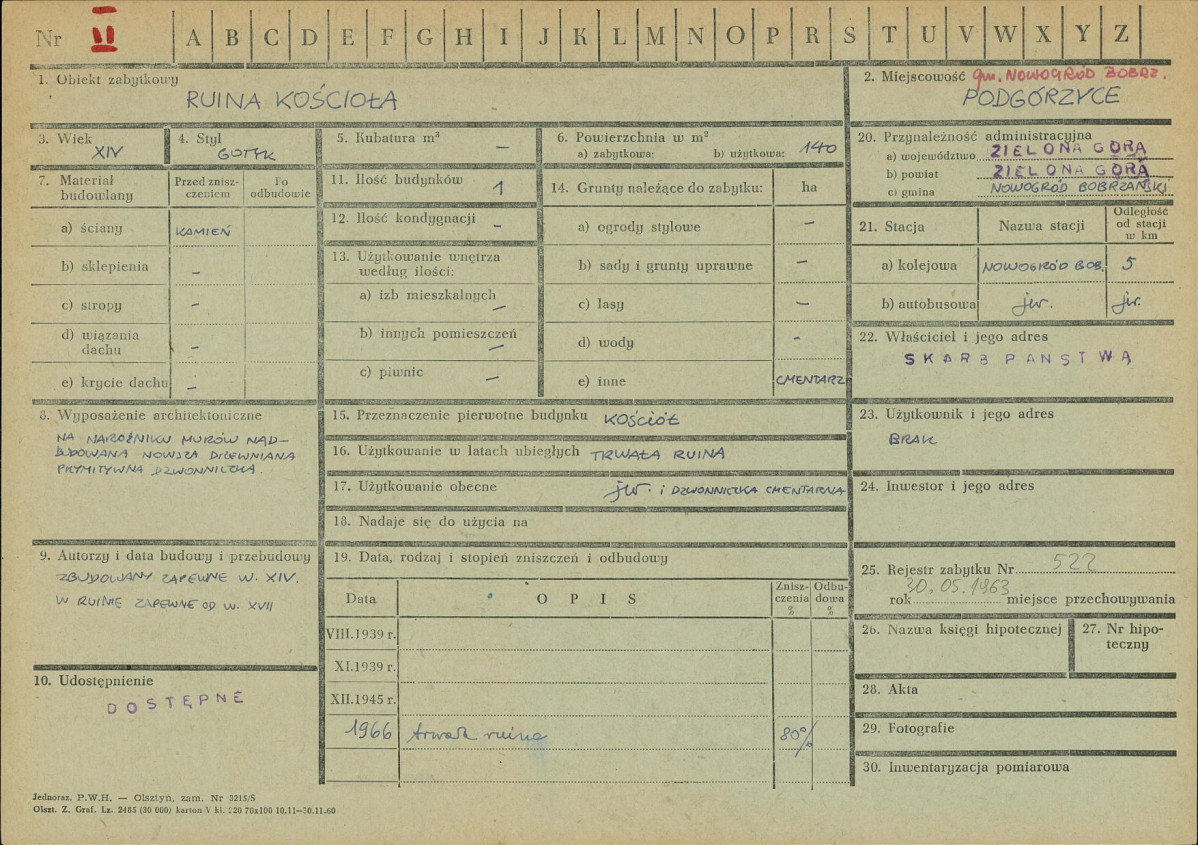 Nr VI A B C D E F G H I J K L M N O P R S T U V W X Y Z
1. Obiekt zabytkowy
RUINA KOŚCIOŁA
2. Miejscowość gm. NOWOGRÓD BOBRZ.
PODGÓRZYCE
3. Wiek
XIV
4. Styl
GOTYK
5. Kubatura m³
—
6. Powierzchnia w m²
a) zabytkowa: b) użytkowa: 140
7. Materiał budowlany
Przed znisz-
czeniem
Po
odbudowie
a) ściany KAMIEŃ
b) sklepienia –
c) stropy –
d) wiązania
dachu –
e) krycie dachu –
8. Wyposażenie architektoniczne
NA NAROŻNIKU MURÓW NAD-
BUDOWANA NOWSZA DREWNIANA
PRYMITYWNA DZWONNICZKA.
9. Autorzy i data budowy i przebudowy
ZBUDOWANY ZAPEWNE W. XIV.
W RUINIE ZAPEWNE OD W. XVII
10. Udostępnienie
DOSTĘPNE
11. Ilość budynków 1
12. Ilość kondygnacji –
13. Użytkowanie wnętrza
według ilości:
a) izb mieszkalnych –
b) innych pomieszczeń –
c) piwnic –
14. Grunty należące do zabytku: ha
a) ogrody stylowe –
b) sady i grunty uprawne –
c) lasy –
d) wody -
e) inne CMENTARZ
15. Przeznaczenie pierwotne budynku KOŚCIÓŁ
16. Użytkowanie w latach ubiegłych TRWAŁA RUINA
17. Użytkowanie obecne jw. i DZWONNICZKA CMENTARNA
18. Nadaje się do użycia na
19. Data, rodzaj i stopień zniszczeń i odbudowy
Data O P I S
Znisz-
czenia
%
Odbu-
dowa
%
VIII.1939 r.
XI.1939 r.
XII.1945 r.
1966 trwała ruina 80%
20. Przynależność administracyjna
a) województwo ZIELONA GÓRA
b) powiat ZIELONA GÓRA
c) gmina NOWOGRÓD BOBRZAŃSKI
21. Stacja Nazwa stacji
Odległość
od stacji
w km
a) kolejowa NOWOGRÓD BOB. 5
b) autobusowa jw. jw.
22. Właściciel i jego adres
SKARB PAŃSTWA
23. Użytkownik i jego adres
BRAK
24. Inwestor i jego adres
25. Rejestr zabytku Nr 522
rok 30.05.1963 miejsce przechowywania
26. Nazwa księgi hipotecznej
27. Nr hipo-
teczny
28. Akta
29. Fotografie
30. Inwentaryzacja pomiarowa
Jednoraz. P.W.H. — Olsztyn, zam. Nr 3215/S
Olszt. Z. Graf. Lz. 2485 (30 000) karton V kl. 220 70x100 10.11—30.11.60